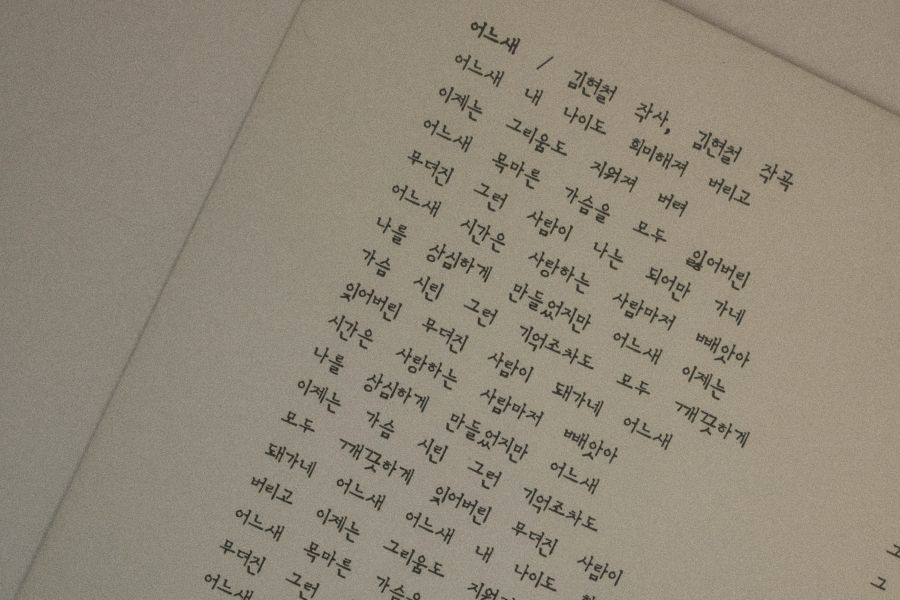 어느새 / 김현철 작사, 김현철 작곡
어느새 내 나이도 희미해져 버리고
이제는 그리움도 지워져 버려
어느새 목마른 가슴을 모두 잃어버린
무뎌진 그런 사람이 나는 되어만 가네
어느새 시간은 사랑하는 사람마저 빼앗아
나를 상심하게 만들었지만 어느새 이제는
가슴 시린 그런 기억조차도 모두 깨끗하게
잊어버린 무뎌진 사람이 돼가네 어느새
시간은 사랑하는 사람마저 빼앗아
나를 상심하게 만들었지만 어느새
이제는 가슴 시린 그런 기억조차도
모두 깨끗하게 잊어버린 무뎌진 사람이
돼가네 어느새 어느새 내 나이도
버리고 이제는 그리움도 지워져
어느새 목마른 가슴을
무뎌진 그런
어느새
그